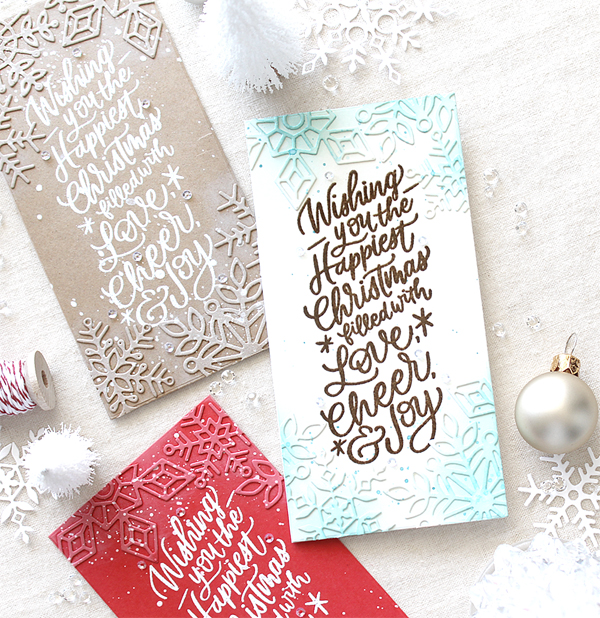 Wishing
you the
Happiest
Christmas
filled with
Love,
Cheer,
& Joy
Wishing
you the
Happiest
Christmas
filled with
Love,
Cheer,
& Joy
Wishing
you the
Happiest
Christmas
filled with